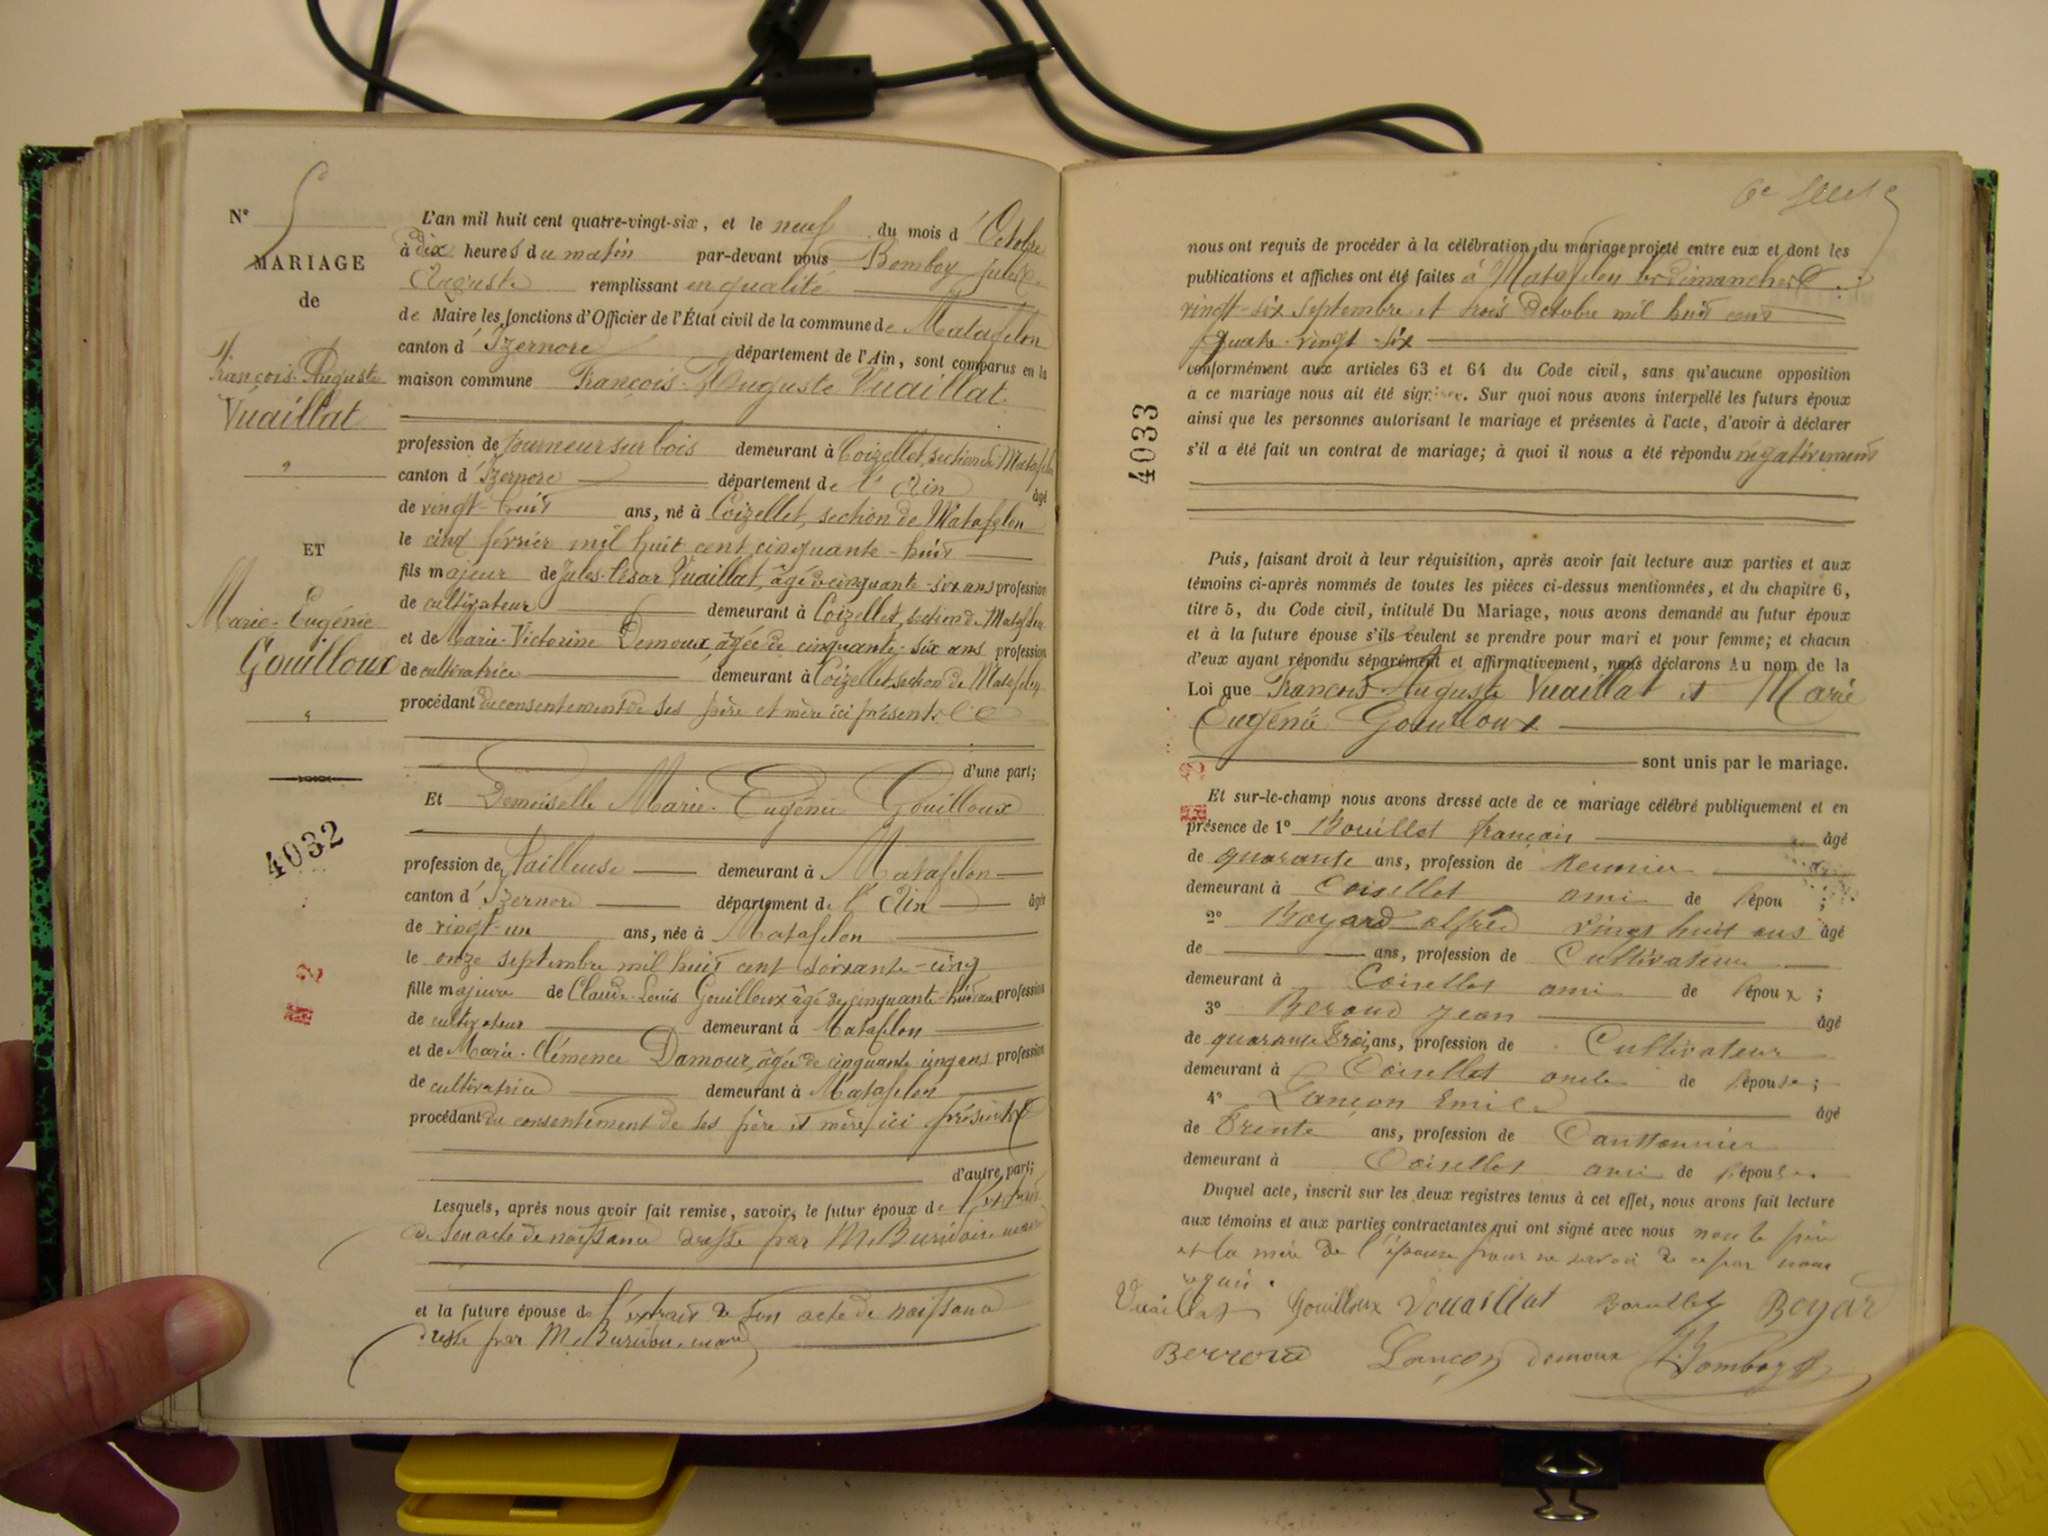 N° 5
MARIAGE
de
François-Auguste
Vuaillat
ET
Marie-Eugénie
Gouilloux
4032
2
L'an mil huit cent quatre-vingt-six, et le neuf du mois d'Octobre
à dix heures du matin par-devant nous Bomboy Jules
Auguste remplissant en qualité
de Maire les fonctions d'Officier de l'État civil de la commune de Matafelon
canton d'Izernore département de l'Ain, sont comparus en la
maison commune François-Auguste Vuaillat
profession de tourneur sur bois demeurant à Coizellet, section de Matafelon
canton d'Izernore département de l'Ain âgé
de vingt-huit ans, né à Coizellet, section de Matafelon
le cinq février mil huit cent cinquante-huit
fils majeur de Jules-César Vuaillat, âgé de cinquante-six ans profession
de cultivateur demeurant à Coizellet, section de Matafelon
et de Marie-Victorine Demoux, âgée de cinquante-six ans profession
de cultivatrice demeurant à Coizellet, section de Matafelon
procédant du consentement de ses père et mère ici présents
d'une part;
Et Demoiselle Marie-Eugénie Gouilloux
profession de Tailleuse demeurant à Matafelon
canton d'Izernore département de l'Ain âgée
de vingt-un ans, née à Matafelon
le onze septembre mil huit cent soixante-cinq
fille majeure de Claude-Louis Gouilloux âgé de cinquante-huit ans profession
de cultivateur demeurant à Matafelon
et de Marie-Clémence Damour, âgée de cinquante cinq ans profession
de cultivatrice demeurant à Matafelon
procédant du consentement de ses père et mère ici présents
d'autre part;
Lesquels, après nous avoir fait remise, savoir, le futur époux de l'extrait
de son acte de naissance dressé par M. maire
et la future épouse de l'extrait de son acte de naissance
dressé par M. maire
4033
2
nous ont requis de procéder à la célébration du mariage projeté entre eux et dont les
publications et affiches ont été faites à Matafelon les dimanches
vingt-six septembre et trois Octobre mil huit cent
quatre-vingt-six
conformément aux articles 63 et 64 du Code civil, sans qu'aucune opposition
a ce mariage nous ait été signifiée. Sur quoi nous avons interpellé les futurs époux
ainsi que les personnes autorisant le mariage et présentes à l'acte, d'avoir à déclarer
s'il a été fait un contrat de mariage; à quoi il nous a été répondu négativement
Puis, faisant droit à leur réquisition, après avoir fait lecture aux parties et aux
témoins ci-après nommés de toutes les pièces ci-dessus mentionnées, et du chapitre 6,
titre 5, du Code civil, intitulé Du Mariage, nous avons demandé au futur époux
et à la future épouse s'ils veulent se prendre pour mari et pour femme; et chacun
d'eux ayant répondu séparément et affirmativement, nous déclarons Au nom de la
Loi que François-Auguste Vuaillat et Marie
Eugénie Gouilloux
sont unis par le mariage.
Et sur-le-champ nous avons dressé acte de ce mariage célébré publiquement et en
présence de 1° Bouillet françois âgé
de quarante ans, profession de Meunier
demeurant à Coisellet ami de l'épou ;
2° Boyard alfred vingt huit ans âgé
de ans, profession de Cultivateur
demeurant à Coisellet ami de l'époux ;
3° Beroud Jean âgé
de quarante trois ans, profession de Cultivateur
demeurant à Coisellet oncle de l'épouse ;
4° Lançon Emile âgé
de Trente ans, profession de Cantonnier
demeurant à Coisellet ami de l'épouse.
Duquel acte, inscrit sur les deux registres tenus à cet effet, nous avons fait lecture
aux témoins et aux parties contractantes qui ont signé avec nous non le père
et la mère de l'épouse pour ne savoir de ce par nous
requis.
Vuaillat Gouilloux Vouaillat Bouillet Boyar
Berroud Lançon demoux Bomboy